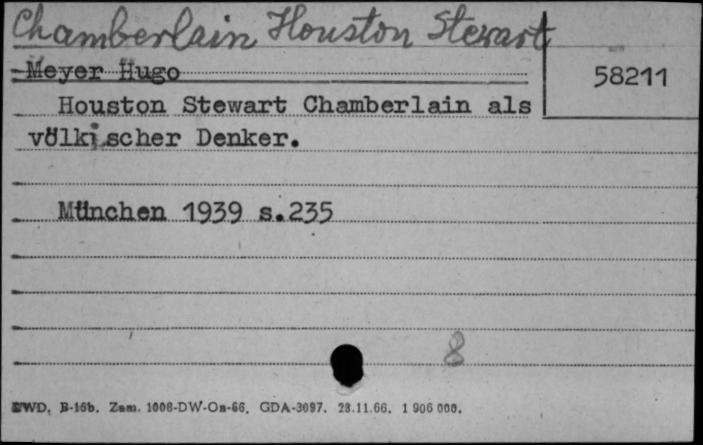 Chamberlain Houston Stewart
Meyer Hugo
58211
Houston Stewart Chamberlain als
völkischer Denker.
München 1939 s.235
8
DWD. B-16b. Zam. 1008-DW-On-66. GDA-3097. 23.11.66. 1 906 000.